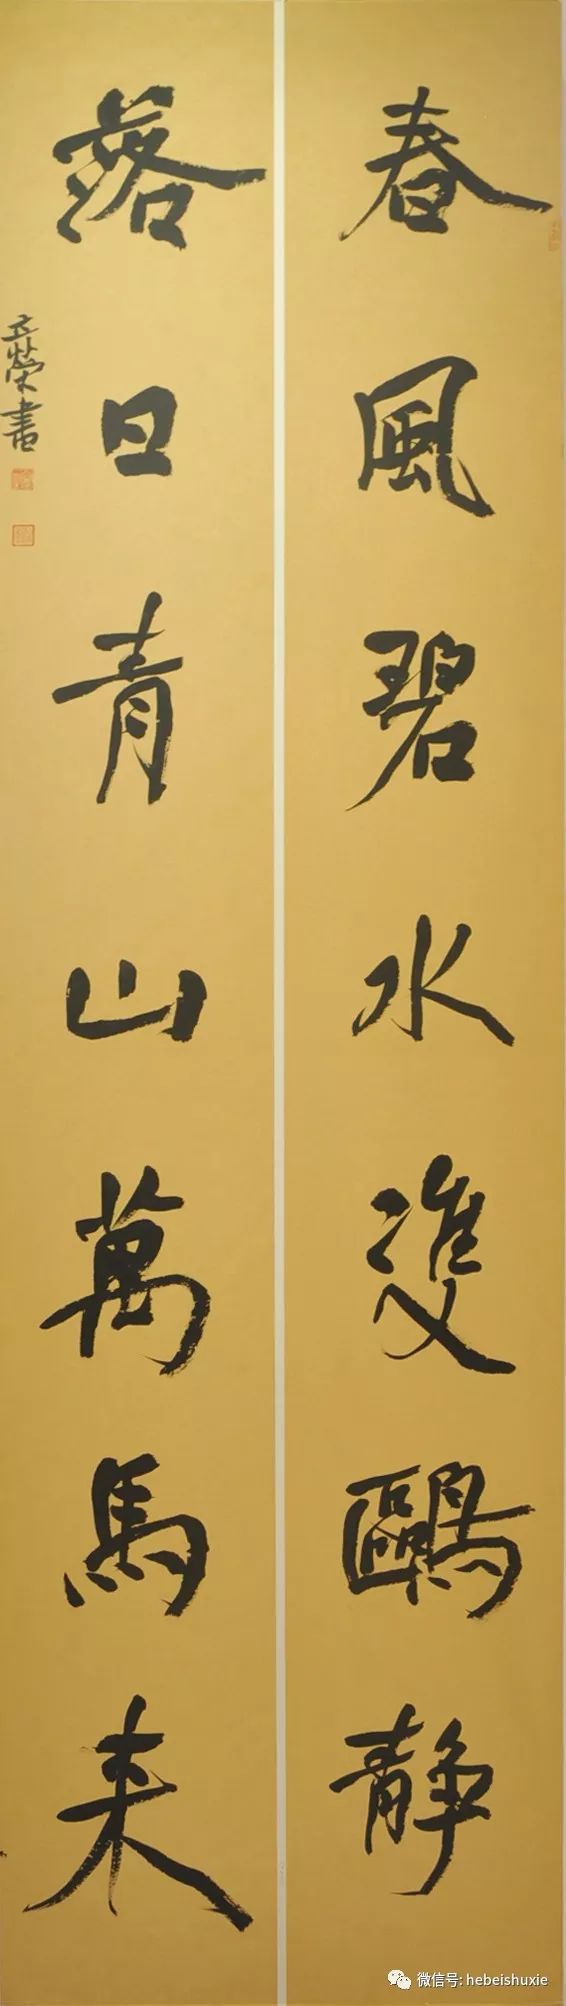 春風碧水雙鷗靜
落日青山萬馬来
立榮書
微信号: hebeishuxie